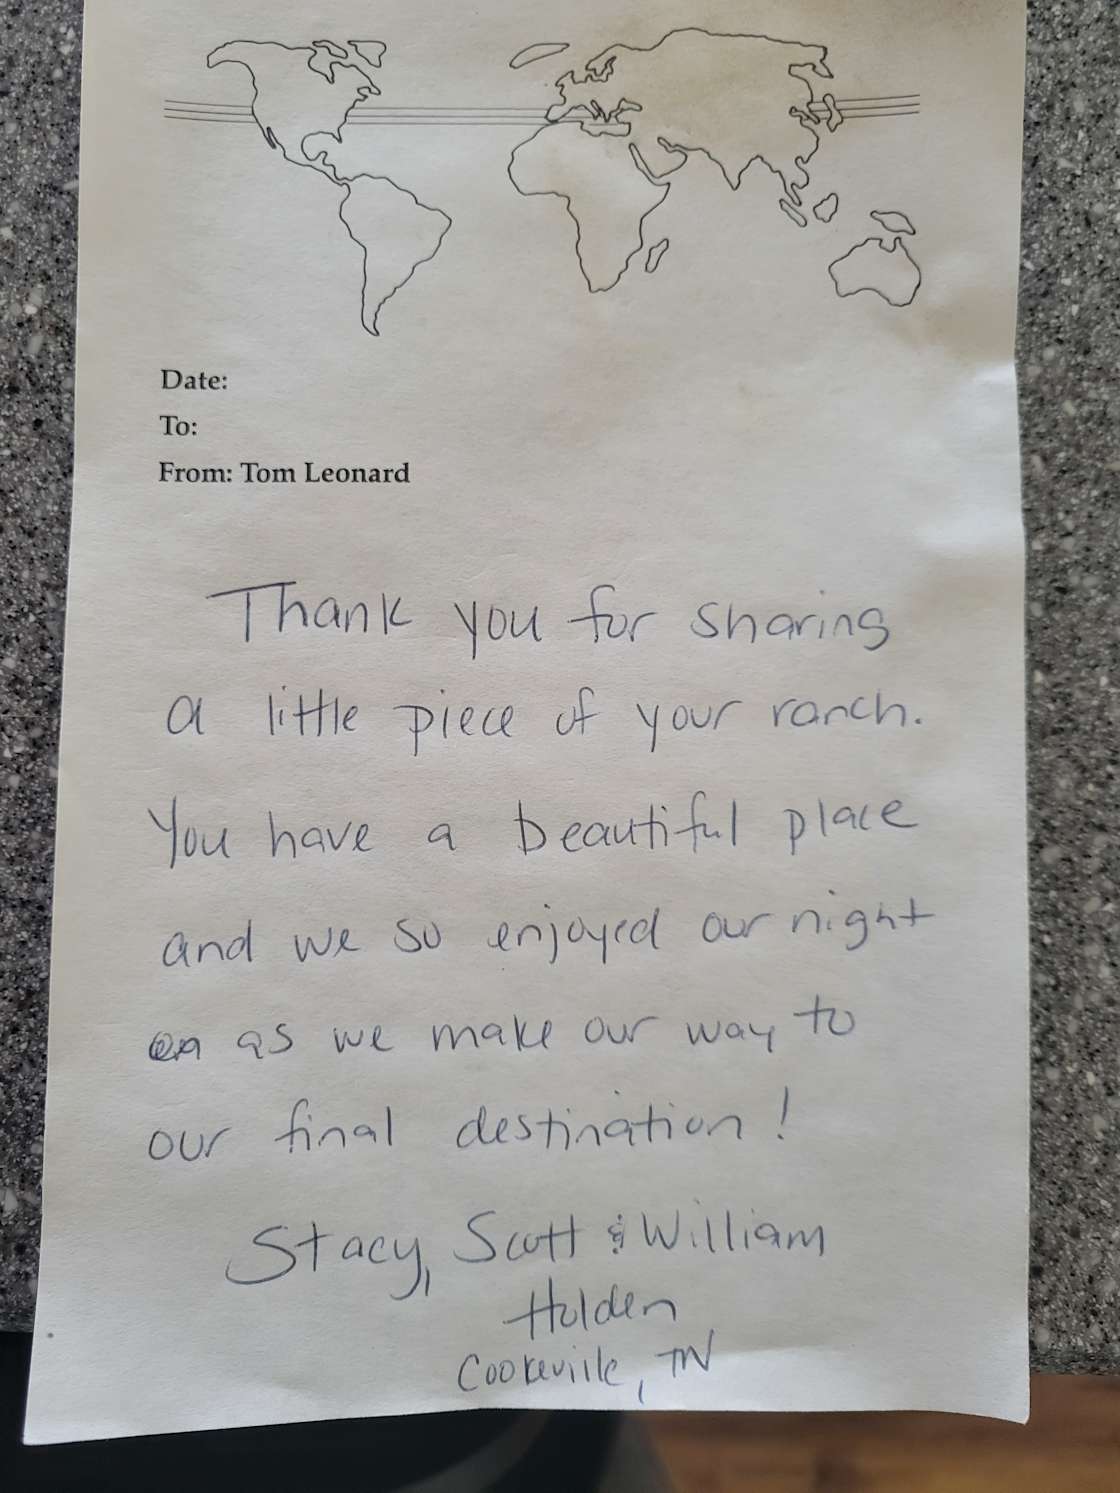 Date:
To:
From: Tom Leonard
Thank you for sharing
a little piece of your ranch.
You have a beautiful place
and we so enjoyed our night
as we make our way to
our final destination!
Stacy, Scott & William
Holden
Cookeville, TN